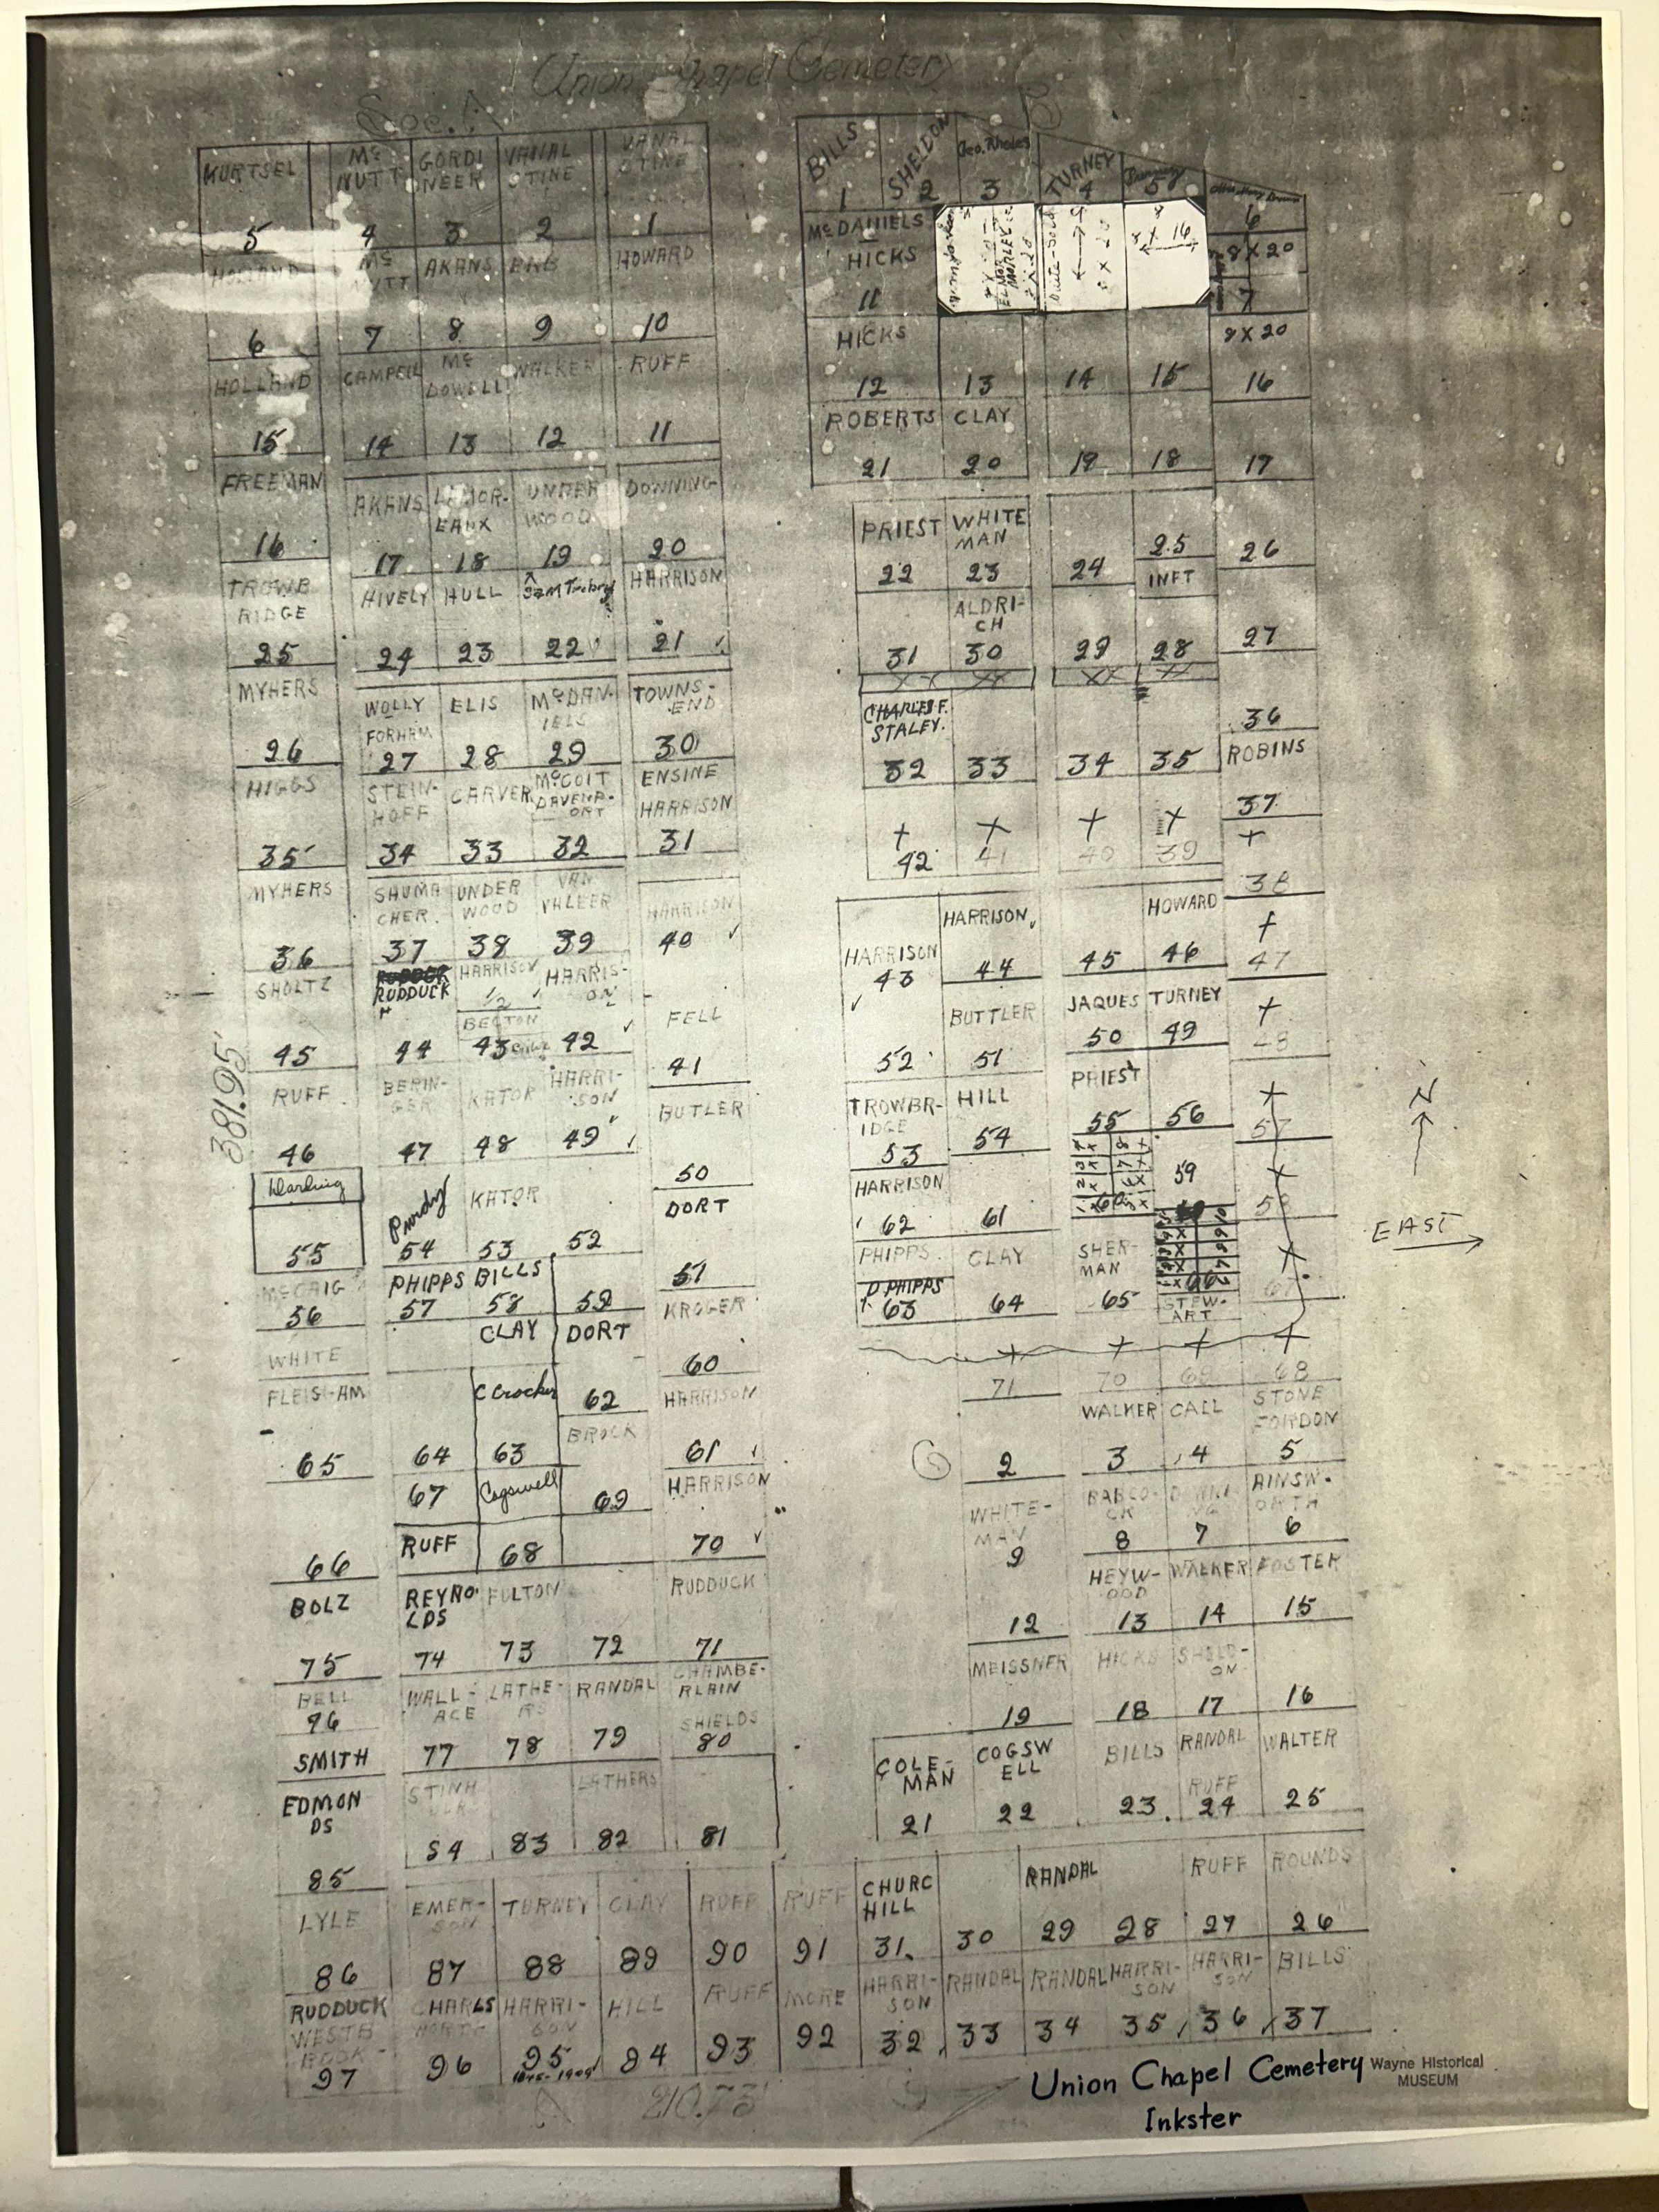 Union Chapel Cemetery
Sec. A
KURTSEL
5
Mc
NUTT
4
GORDI
NEER
3
VANAL
STINE
2
VANAL
STINE
1
HOLLAND
6
Mc
NUTT
7
AKANS
8
9
HOWARD
10
HOLLAND
15
CAMPELL
14
Mc
DOWELL
13
WALKER
12
RUFF
11
FREEMAN
16
AKANS
17
LAMOR-
EAUX
18
UNDER
WOOD
19
DOWNING
20
TROWB
RIDGE
25
HIVELY
24
HULL
23
22
HARRISON
21
MYHERS
26
WOLLY
FORHAM
27
ELIS
28
McDAN-
IELS
29
TOWNS-
END
30
HIGGS
35
STEIN-
HOFF
34
CARVER
33
McCOIT
DAVENP-
ORT
32
ENSINE
HARRISON
31
MYHERS
36
SHUMA
CHER
37
UNDER
WOOD
38
VAN
VHLEER
39
HARRISON
40
SHOLTZ
45
RUDDUCK
44
HARRISON
1/2
BECTON
43
HARRIS-
ON
42
FELL
41
381.95'
RUFF
46
BERIN-
GER
47
KATOR
48
HARRI-
SON
49
BUTLER
50
Darling
55
Purdy
54
KATOR
53
52
DORT
51
McCAIG
56
PHIPPS
57
BILLS
58
59
KROGER
60
WHITE
FLEISHAM
65
64
CLAY
C Crocker
63
DORT
62
BROCK
HARRISON
61
66
67
RUFF
Cogswell
68
69
HARRISON
70
BOLZ
75
REYNO-
LDS
74
FULTON
73
72
RUDDUCK
71
BELL
76
SMITH
WALL-
ACE
77
LATHE-
RS
78
RANDAL
79
CHAMBE-
RLAIN
SHIELDS
80
EDMON
DS
85
84
83
LATHERS
82
81
LYLE
86
EMER-
SON
87
TURNEY
88
CLAY
89
RUFF
90
RUFF
91
CHURC
HILL
31
30
RANDAL
29
28
RUFF
27
ROUNDS
26
RUDDUCK
WESTB
ROOK-
97
CHARLS
WORTH
96
HARRI-
SON
95
HILL
94
RUFF
93
MORE
92
HARRI-
SON
32
RANDAL
33
RANDAL
34
HARRI-
SON
35
HARRI-
SON
36
BILLS
37
A
210.75'
BILLS
1
SHELDON
2
Geo. Rhodes
3
TURNEY
4
5
6
McDANIELS
HICKS
11
8 X 16
8 X 20
7
HICKS
12
13
14
15
8 X 20
16
ROBERTS
21
CLAY
20
19
18
17
PRIEST
22
WHITE
MAN
23
24
25
INFT
26
31
ALDRI-
CH
30
29
28
27
XX XX XX XX
CHARLES F.
STALEY.
32
33
34
35
36
ROBINS
37
+ + + + +
42 41 40 39
38
HARRISON
43
HARRISON
44
45
HOWARD
46
+
47
52
BUTTLER
51
JAQUES
50
TURNEY
49
+
48
TROWBR-
IDGE
53
HILL
54
PRIEST
55
56
+
57
HARRISON
62
61
60
59
+
58
PHIPPS
D PHIPPS
63
CLAY
64
SHER-
MAN
65
66
STEW-
ART
+
67
+ + + +
71 70 69 68
2
WALKER
3
CALL
4
STONE
FORDON
5
WHITE-
MAN
9
BABCO-
CK
8
7
AINSW-
ORTH
6
12
HEYW-
OOD
13
WALKER
14
FOSTER
15
MEISSNER
19
HICKS
18
SHELD-
ON
17
16
COLE-
MAN
21
COGSW
ELL
22
BILLS
23
RANDAL
RUFF
24
WALTER
25
N
EAST
Union Chapel Cemetery
Inkster
Wayne Historical
MUSEUM